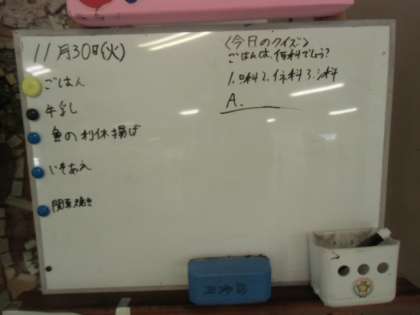 11月30日(火)
ごはん
牛乳
魚の利休揚げ
いそあえ
関東焼き
〈今日のクイズ〉
ごはんは、何科でしょう?
1. 2. イネ科 3.
A.